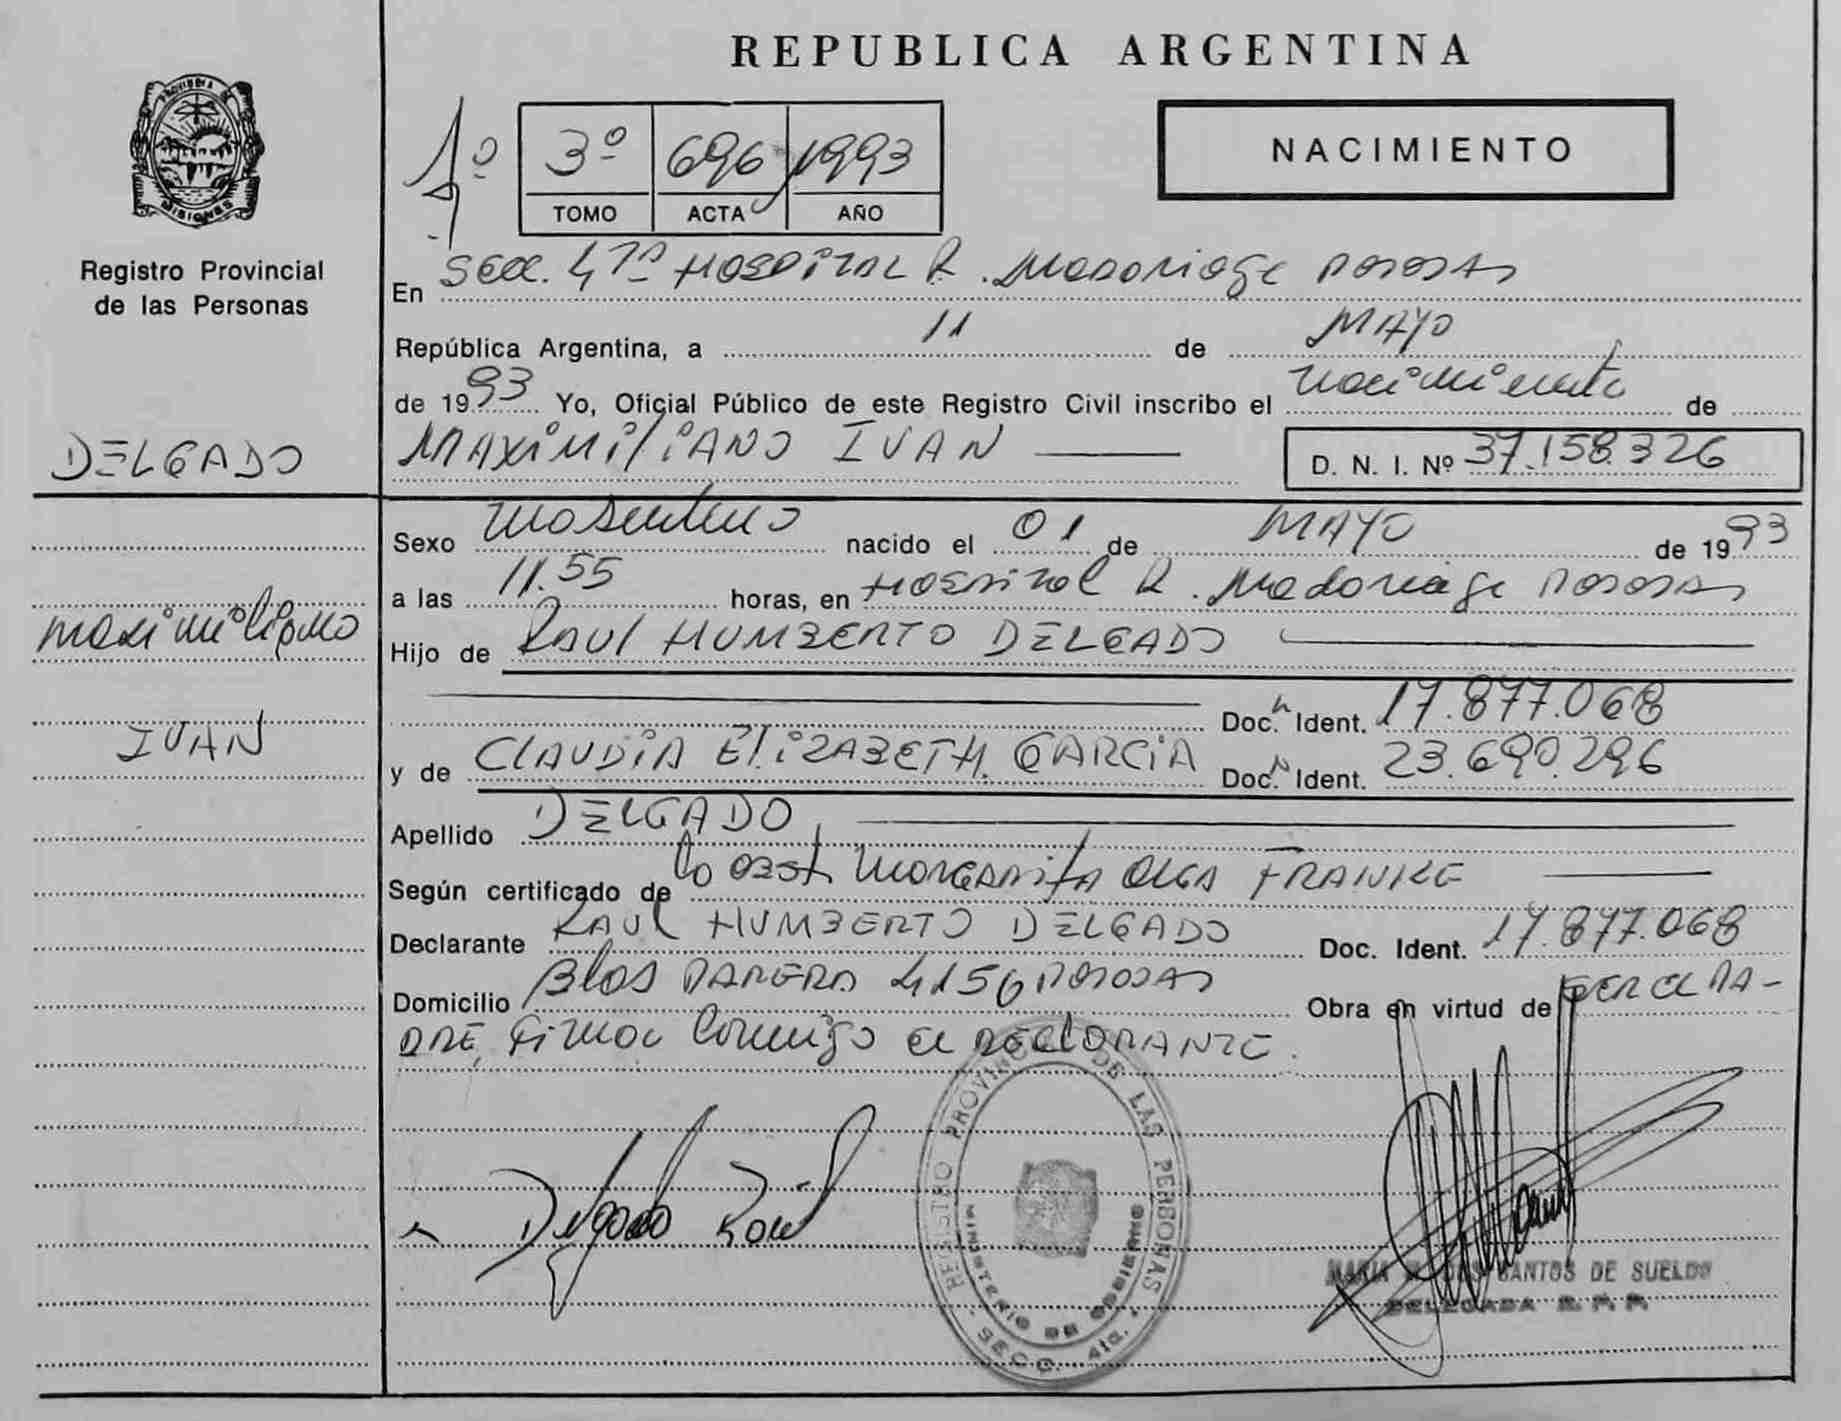 REPUBLICA ARGENTINA
PROVINCIA DE
MISIONES
Registro Provincial
de las Personas
1º
3º 696 1993
TOMO ACTA AÑO
NACIMIENTO
En Secc. 4ta Hospital R. Madariaga Posadas
República Argentina, a 11 de MAYO
de 1993 Yo, Oficial Público de este Registro Civil inscribo el nacimiento de
DELGADO
MAXIMILIANO IVAN
D. N. I. Nº 37.158.326
Sexo Masculino nacido el 01 de MAYO de 1993
a las 11.55 horas, en Hospital R. Madariaga Posadas
Maximiliano
Hijo de RAUL HUMBERTO DELGADO
Doc. Ident. 17.877.068
IVAN
y de CLAUDIA ELIZABETH GARCIA Doc. Ident. 23.690.296
Apellido DELGADO
Según certificado de la obst. Margarita Olga FRANKE
Declarante RAUL HUMBERTO DELGADO Doc. Ident. 17.877.068
Domicilio Blas PARERA 4156 POSADAS Obra en virtud de ser el PA-
DRE, Firma Conmigo el DECLARANTE.
Delgado Raúl
REGISTRO PROVINCIAL DE LAS PERSONAS
MINISTERIO DE GOBIERNO
- SECC. 4ta. -
MARIA DOS SANTOS DE SUELDO
DELEGADA R. P. P.